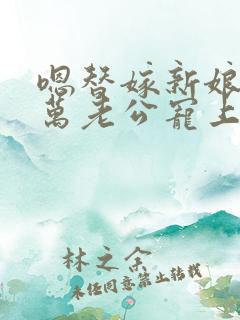 嗯替嫁新娘
萬老公寵上
林之余
未经同意禁止转载